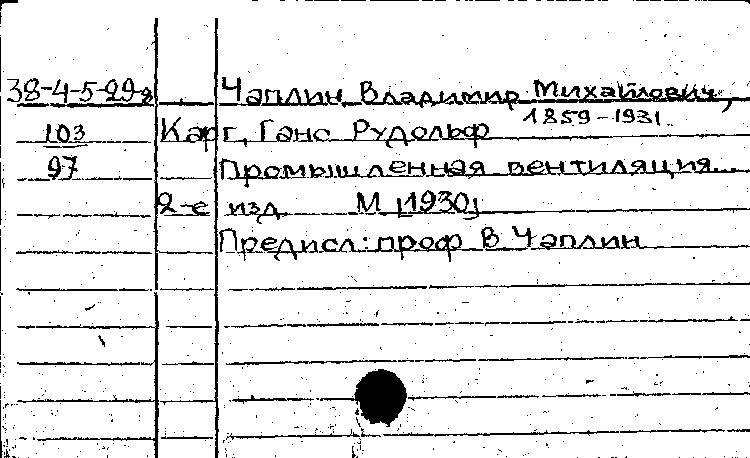 38-4-5-29а Чаплин, Владимир Михайлович,
1859-1931.
103 Карг, Ганс Рудольф
97 Промышленная вентиляция...
2-е изд. М [1930]
Предисл: проф В. Чаплин